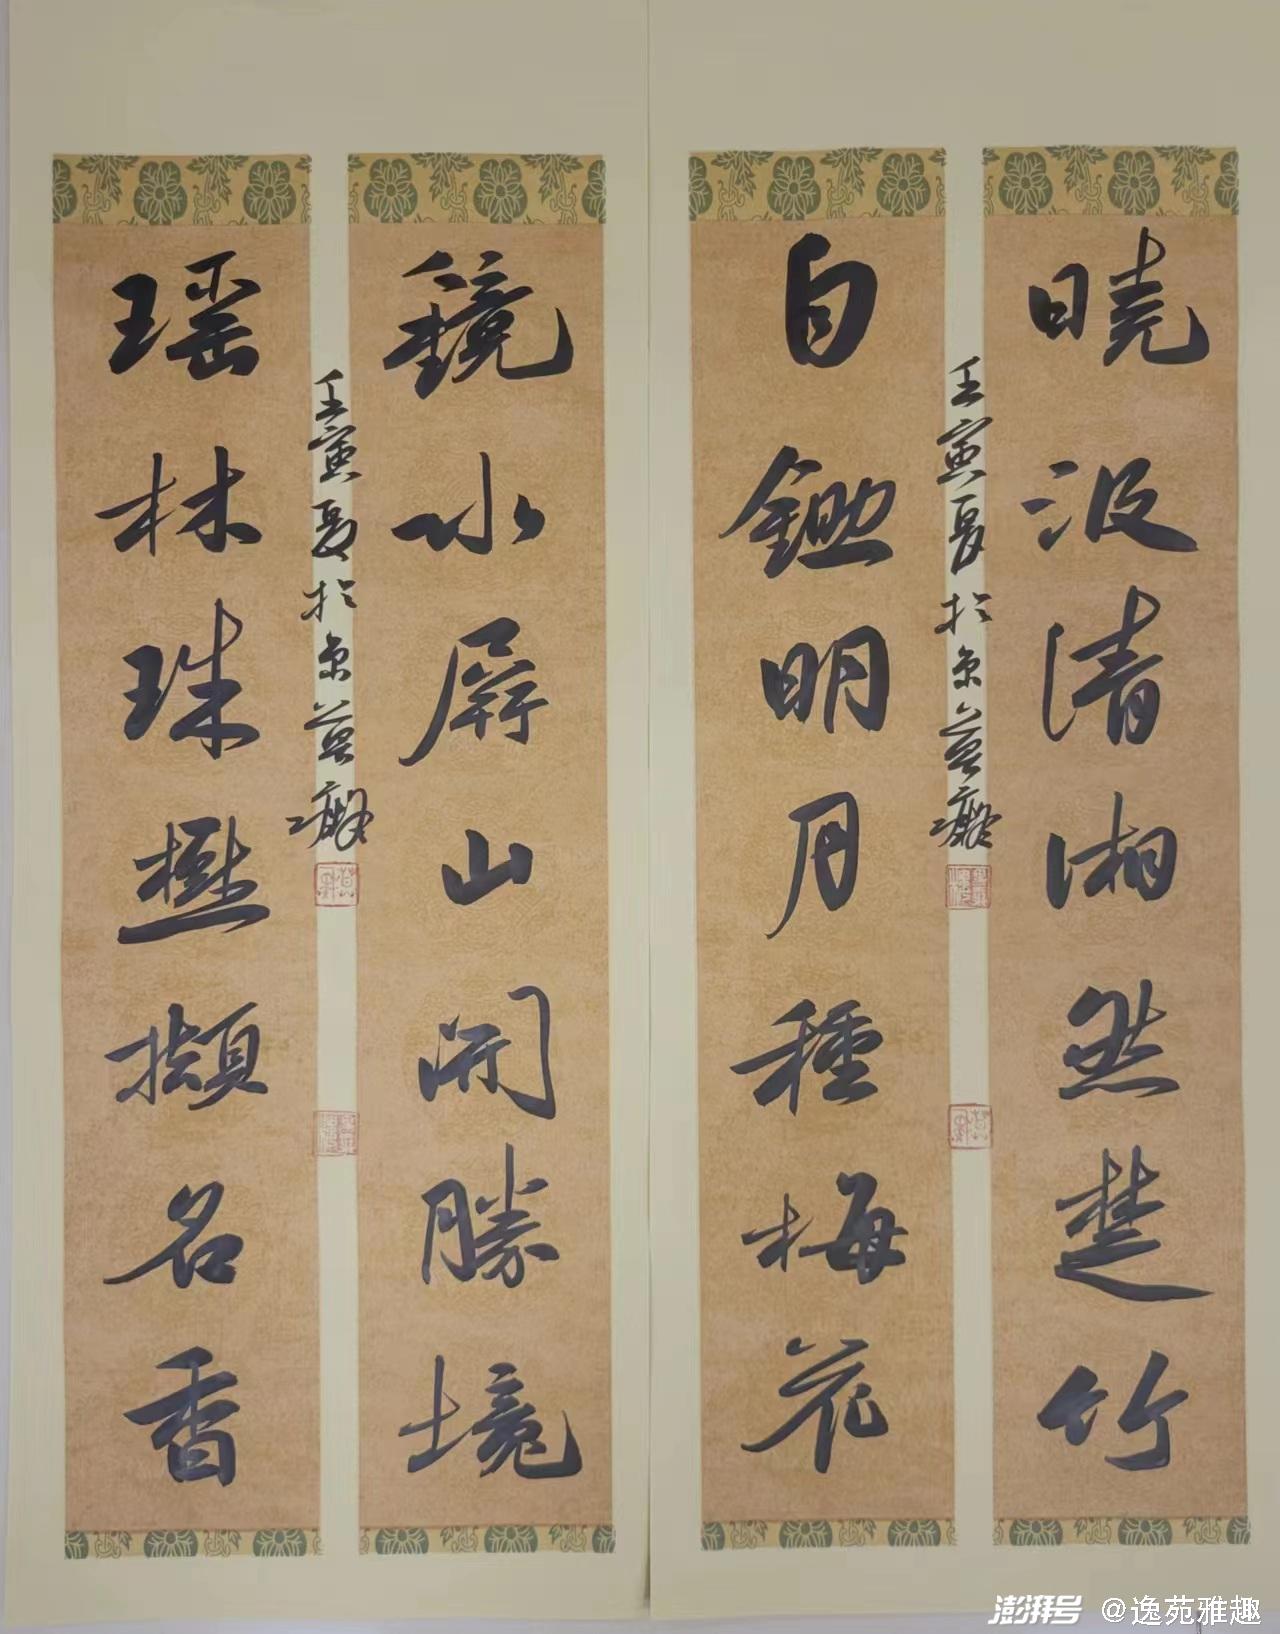 曉汲清湘然楚竹
壬寅夏於京
自鋤明月種梅花
鏡水屏山開勝境
壬寅夏於京
瑶林珠擷名香
澎湃号 @逸苑雅趣